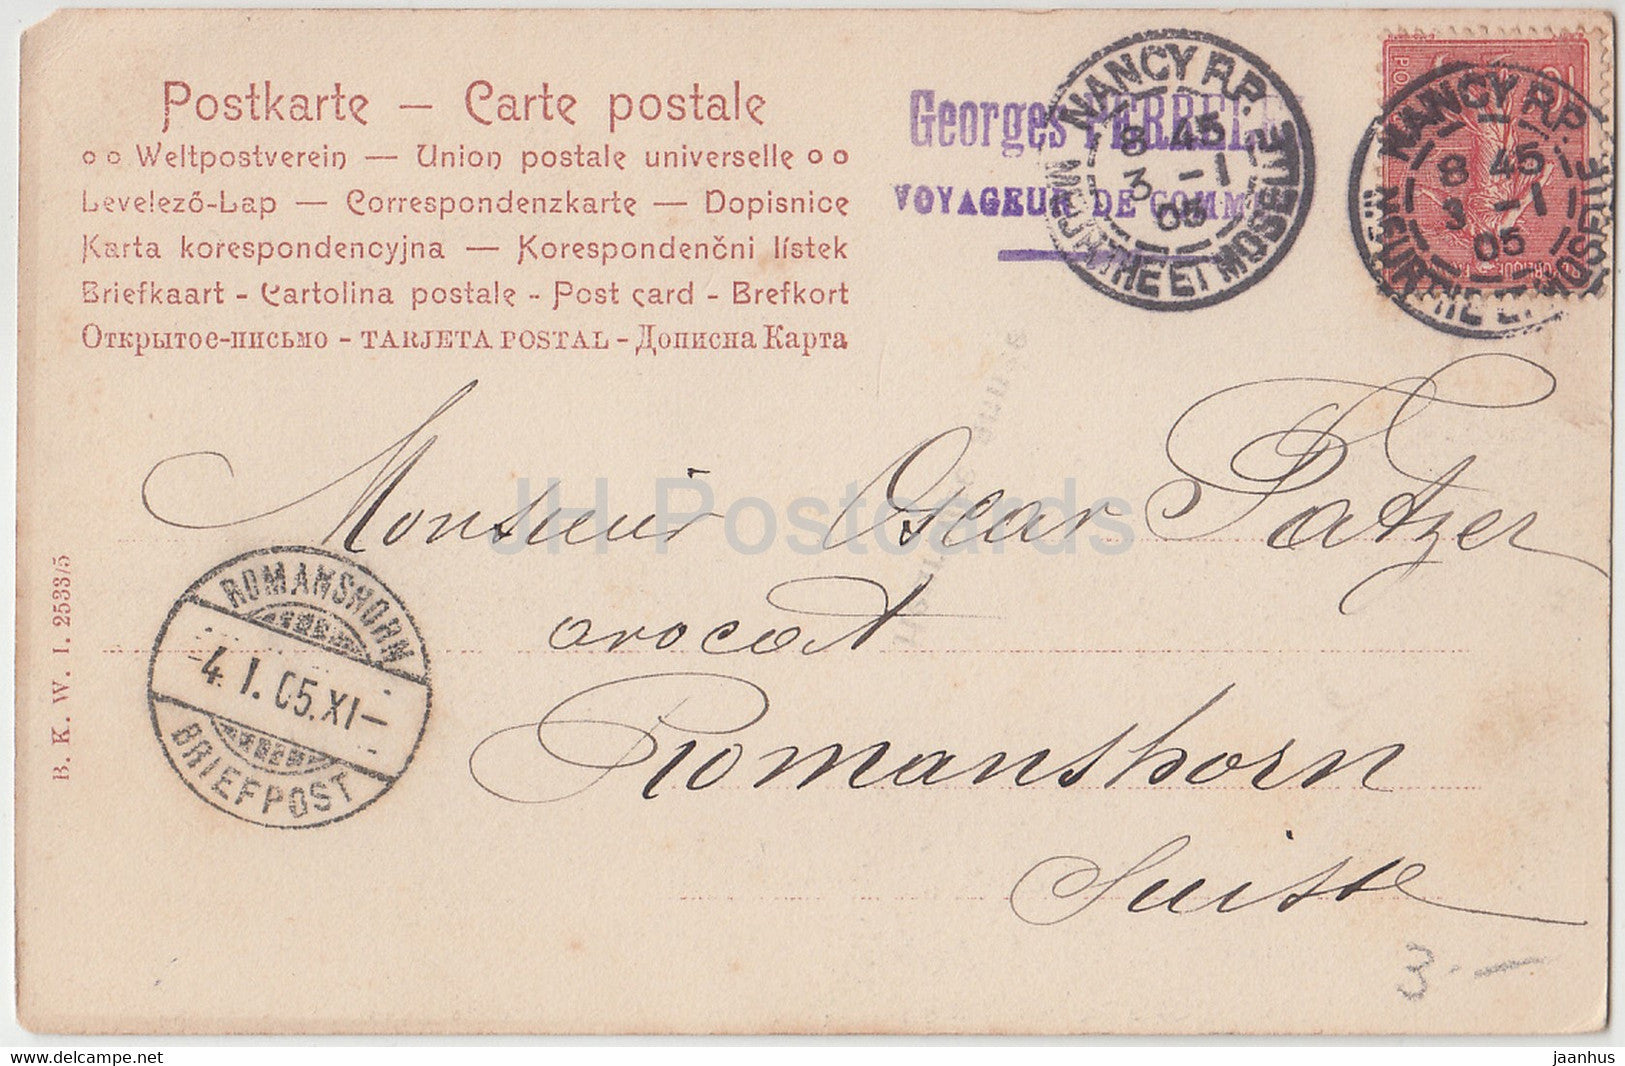 Postkarte – Carte postale
Weltpostverein — Union postale universelle
Levelező-Lap — Correspondenzkarte — Dopisnice
Karta korespondencyjna — Korespondenčni lístek
Briefkaart - Cartolina postale - Post card - Brefkort
Открытое-письмо - TARJETA POSTAL - Дописна Карта
Georges
VOYAGEUR DE COMM
NANCY R.P.
8 45
3 -1
05
MEURTHE ET MOSELLE
NANCY R.P.
8 45
3 -1
05
MEURTHE ET MOSELLE
Monsieur Oscar Patzer
avocat
Romanshorn
Suisse
ROMANSHORN
-4.I.05.XI-
BRIEFPOST
B. K. W. I. 2533/5
3.-
JH Postcards
jaanhus